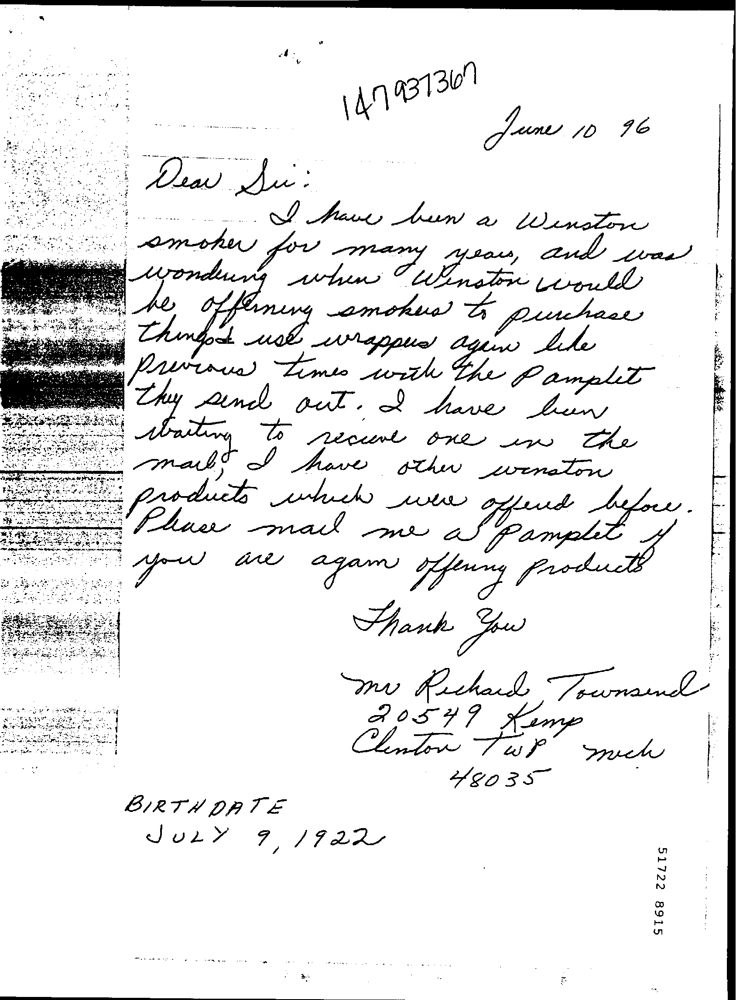 147937367
June 10 96
Dear Sir:
I have been a Winston
smoker for many years, and was
wondering when Winston would
be offerning smokers to purchase
things & use wrappers again like
previous times with the Pamplet
they send out. I have been
waiting to recieve one in the
mail, I have other winston
products which were offered before.
Please mail me a Pamplet if
you are again offering products
Thank You
Mr Richard Townsend
20549 Kemp
Clinton TWP Mich
48035
BIRTHDATE
JULY 9, 1922
51722 8915